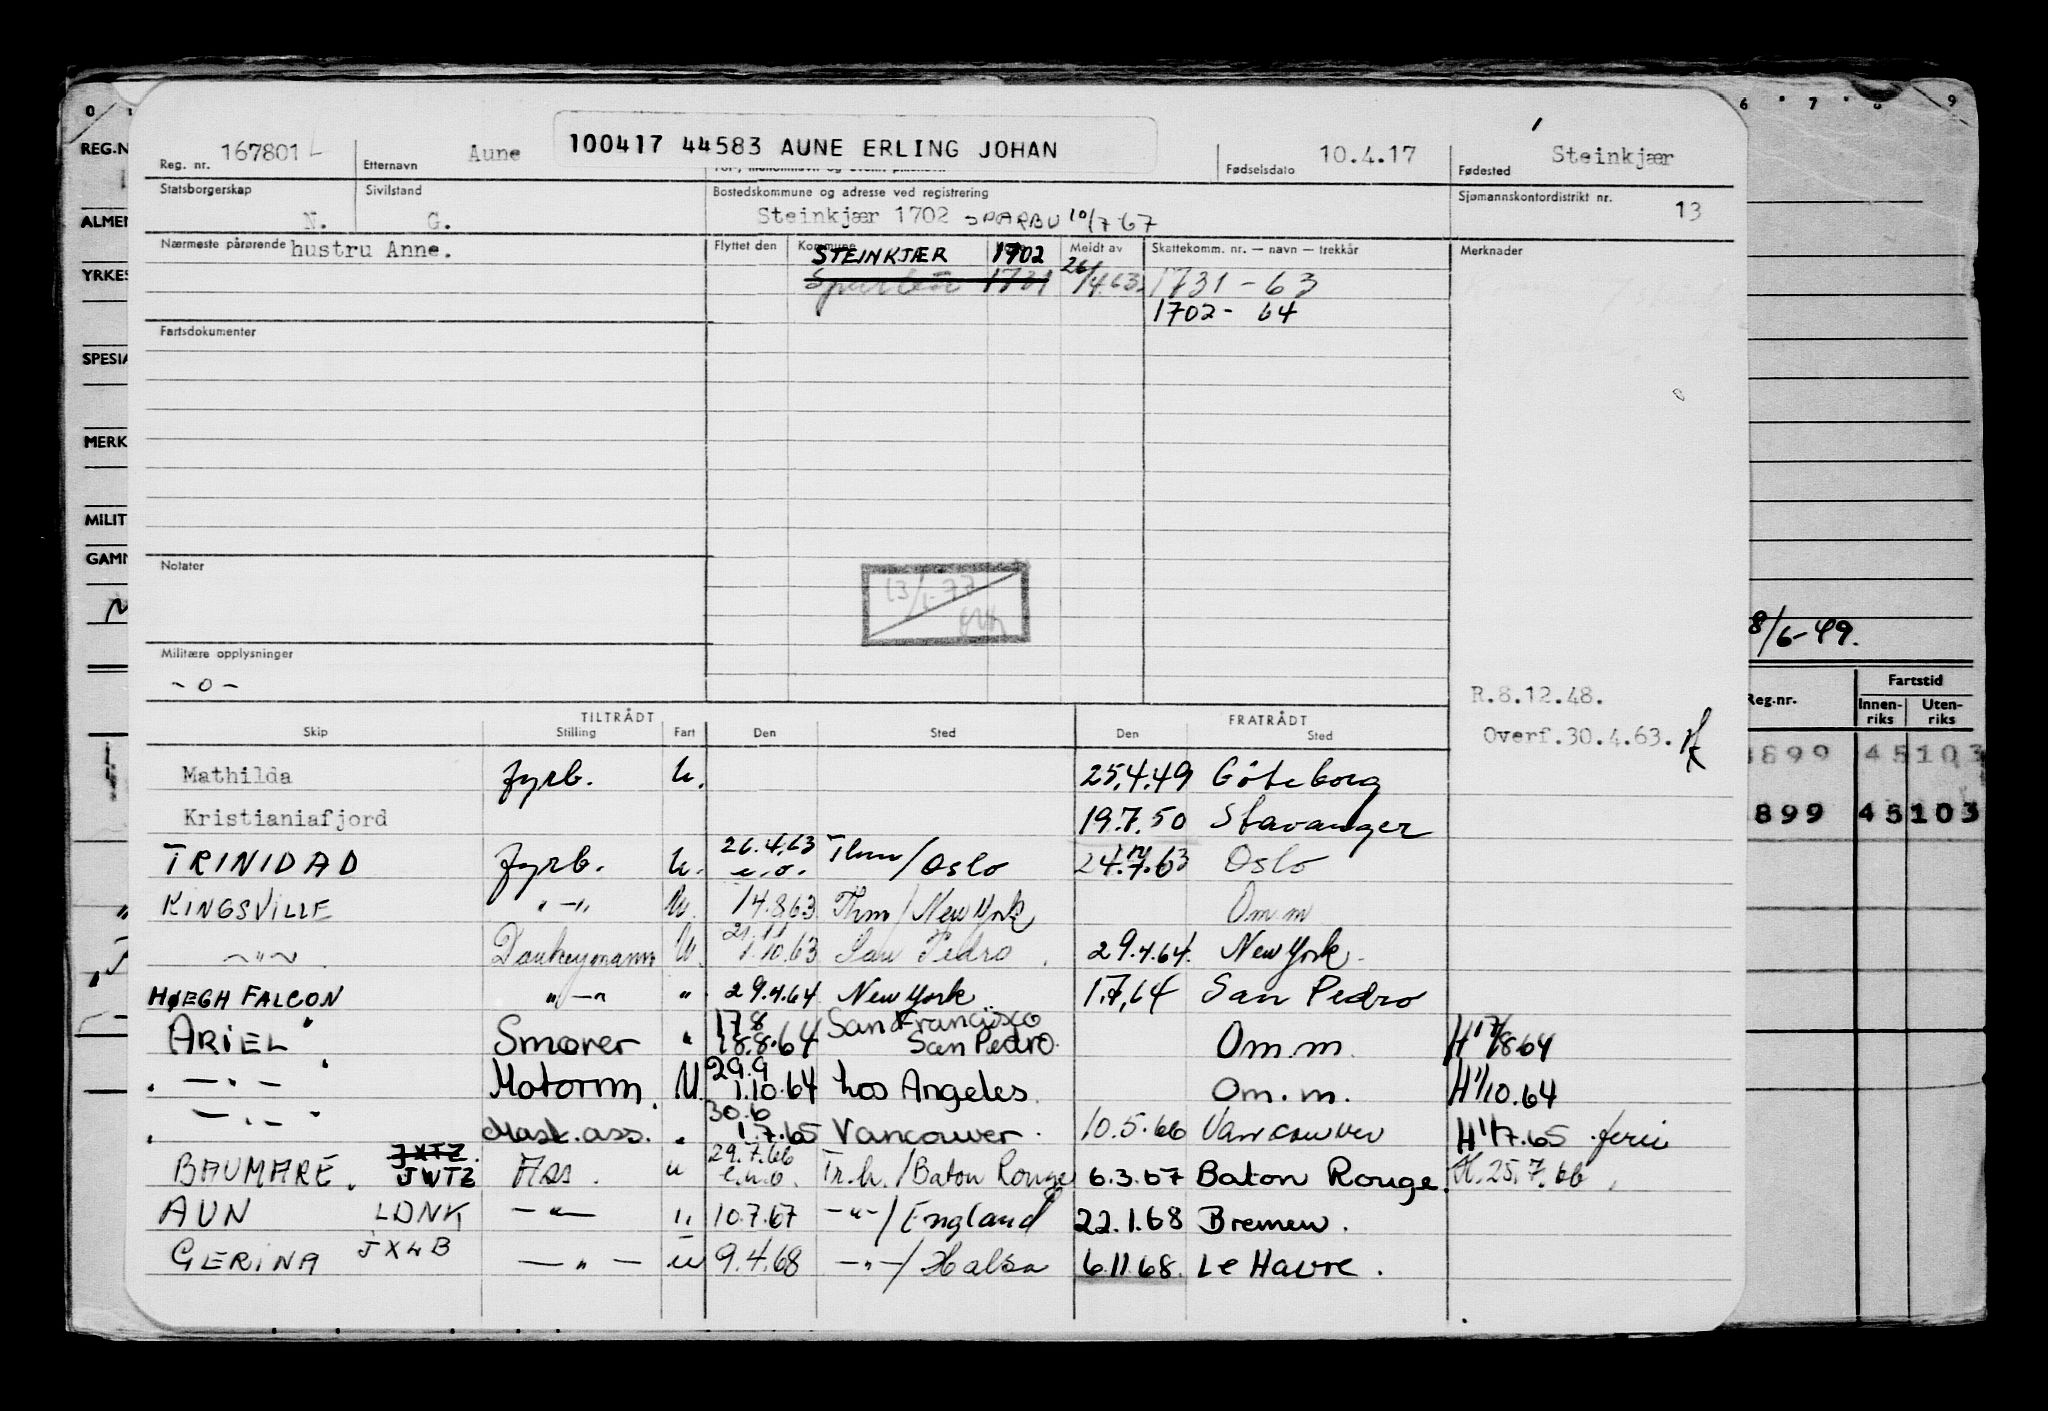 0 6 7 8 9
REG.N
ALMEN
YRKES
SPESIA
MERK
MILIT
GAMM
Reg. nr. 167801 Etternavn Aune 100417 44583 AUNE ERLING JOHAN Fødselsdato 10.4.17 Fødested Steinkjær
Statsborgerskap N. Sivilstand G. Bostedskommune og adresse ved registrering Steinkjær 1702 SPARBU 10/7 67 Sjømannskontordistrikt nr. 13
Nærmeste pårørende hustru Anne. Flyttet den Kommune Meldt av Skattekomm. nr. — navn — trekkår Merknader
STEINKJÆR 1702
Sparbu 1731 26/4.63 1731 - 63
1702 - 64
Fartsdokumenter
Notater
13/1-77
Militære opplysninger
- o -
8/6-49.
R.8.12.48.
Overf.30.4.63.
TILTRÅDT FRATRÅDT
Skip Stilling Fart Den Sted Den Sted
Reg.nr. Fartstid
Innen-riks Uten-riks
899 45103
899 45103
Mathilda fyrb. U. 25.4.49 Göteborg
Kristianiafjord 19.7.50 Stavanger
TRINIDAD fyrb. U. 26.4.63 e.o. Thm/Oslo 24.7.63 Oslo
KINGSVILLE " - " U. 14.8.63 Thm/New York Om m
~ " ~ Donkeymann U. 21.11 1.10.63 San Pedro 29.4.64. New York.
HØEGH FALCON " - " " 29.4.64 New York 1.7.64 San Pedro
ARIEL Smører " 17.8 18.8.64 San Francisco San Pedro. Om.m. H 17/8 64
— " — Motorm. U. 29.9 1.10.64 Los Angeles. Om.m. H 1/10.64
— " — Mask.ass. " 30.6 1.7.65 Vancouver. 10.5.66 Vancouver H 1/7.65 ferie
BAUMARE. JXTZ. JWTZ Ass. u 29.7.66 e.u.o. Tr.h./Baton Rouge 6.3.67 Baton Rouge. H. 25.7.66
AUN LDNK — " — " 10.7.67 — " —/England 22.1.68 Bremen.
GERINA JX4B — " — u 9.4.68 — " —/Halsa 6.11.68. Le Havre.